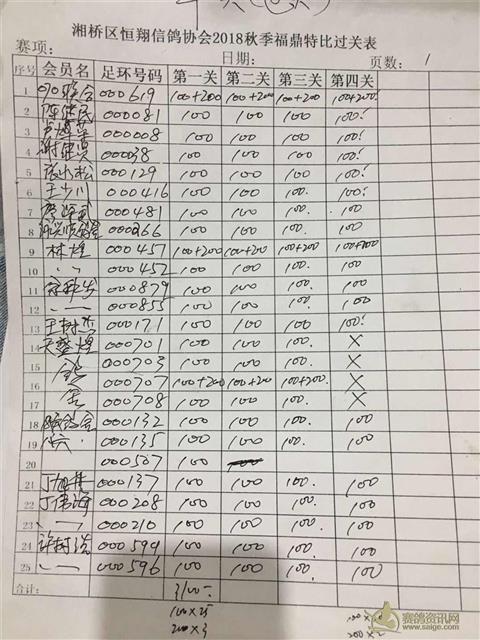 湘桥区恒翔信鸽协会2018秋季福鼎特比过关表
赛项: 日期: 页数: 1
序号 会员名 足环号码 第一关 第二关 第三关 第四关
1 000619 100+200 100+200 100+200 100+200!
2 000081 100 100 100 100!
3 000008 100 100 100 100!
4 00038 100 100 100 100!
5 张小松 000129 100 100 100 100!
6 王少川 000416 100 100 100 100!
7 000481 100 100 100. 100
8 000266 100 100 100. 100
9 林煌 000457 100+200 100+200 100+200 100+200
10 000452 100 100 100. 100
11 000879 100 100 100. 100
12 000855 100 100 100. 100
13 王树杰 000171 100 100 100. 100!
14 000701 100 100 100. X
15 000703 100 100 100. X
16 000707 100+200 100+200 100+200. X
17 000708 100 100 100. X
18 000132 100 100 100. 100
19 000135 100 100 100. 100
20 000507 100
21 000137 100 100 100. 100
22 丁伟海 000208 100 100 100. 100
23 000210 100 100 100. 100
24 000599 100 100 100. 100
25 000596 100 100 100. 100
合计: 3100
100×25
200×3
200×2
赛鸽资讯网
www.saige.com